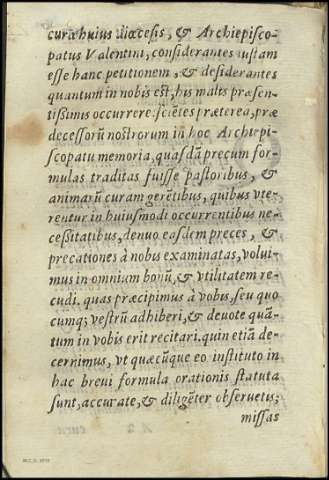 curã huius diœcesis, & Archiepisco-
patus Valentini, considerantes iustam
esse hanc petitionem, & desiderantes
quantum in nobis est, his malis præsen-
tissimis occurrere. sciẽtes præterea, præ
decessorũ nostrorum in hoc Archiepi-
scopatu memoria, quasdã precum for-
mulas traditas fuisse pastoribus, &
animarũ curam gerẽtibus, quibus vte-
rentur in huiusmodi occurrentibus ne-
cessitatibus, denuo easdem preces, &
precationes à nobis examinatas, volui-
mus in omnium bonũ, & vtilitatem re-
cudi. quas præcipimus à vobis, seu quo
cumq; vestrũ adhiberi, & deuote quã-
tum in vobis erit recitari. quin etiã de-
cernimus, vt quæcũque eo instituto in
hac breui formula orationis statuta
sunt, accurate, & diligẽter obseruetis;
missas